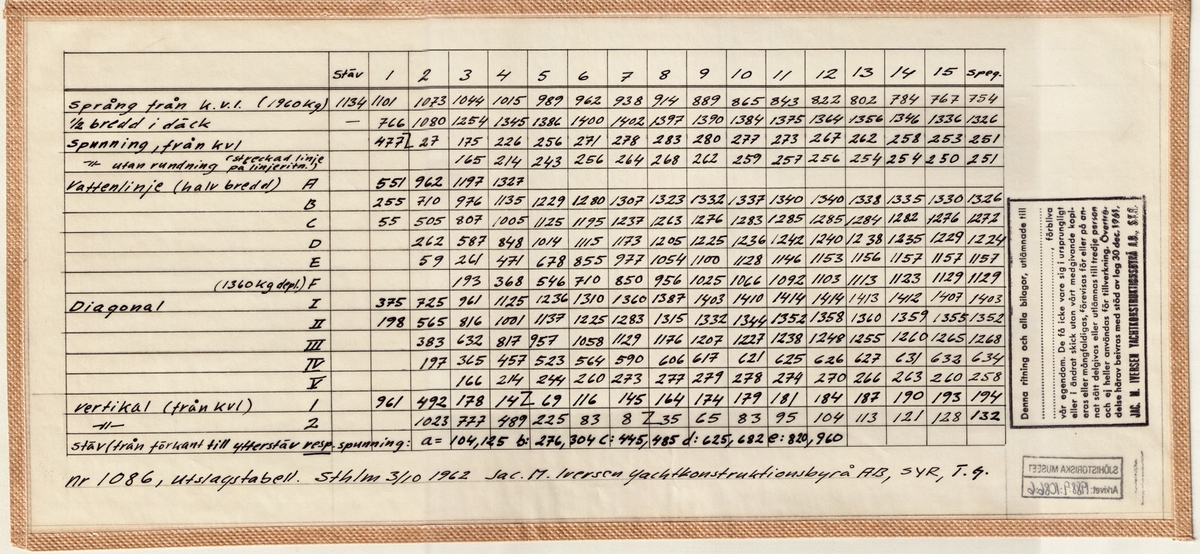 Stäv 1 2 3 4 5 6 7 8 9 10 11 12 13 14 15 Speg.
Språng från k.v.l. (1960 kg) 1134 1101 1073 1044 1015 989 962 938 914 889 865 843 822 802 784 767 754
1/2 bredd i däck — 766 1080 1254 1345 1386 1400 1402 1397 1390 1384 1375 1364 1356 1346 1336 1326
Spunning, från kvl 477 27 175 226 256 271 278 283 280 277 273 267 262 258 253 251
-"- utan rundning (streckad linje på linjeritn.) 165 214 243 256 264 268 262 259 257 256 254 254 250 251
Vattenlinje (halv bredd) A 551 962 1197 1327
B 255 710 976 1135 1229 1280 1307 1323 1332 1337 1340 1340 1338 1335 1330 1326
C 55 505 807 1005 1125 1195 1237 1263 1276 1283 1285 1285 1284 1282 1276 1272
D 262 587 848 1014 1115 1173 1205 1225 1236 1242 1240 1238 1235 1229 1224
E 59 261 471 678 855 977 1054 1100 1128 1146 1153 1156 1157 1157 1157
(1360 kg depl.) F 193 368 546 710 850 956 1025 1066 1092 1103 1113 1123 1129 1129
Diagonal I 375 725 961 1125 1236 1310 1360 1387 1403 1410 1414 1414 1413 1412 1407 1403
II 198 565 816 1001 1137 1225 1283 1315 1332 1344 1352 1358 1360 1359 1355 1352
III 383 632 817 957 1058 1129 1176 1207 1227 1238 1248 1255 1260 1265 1268
IV 197 365 457 523 564 590 606 617 621 625 626 627 631 632 634
V 166 214 244 260 273 277 279 278 274 270 266 263 260 258
Vertikal (från kvl) 1 961 492 178 14 69 116 145 164 174 179 181 184 187 190 193 194
-"- 2 1023 777 489 225 83 8 35 65 83 95 104 113 121 128 132
Stäv (från förkant till ytterstäv resp. spunning: a= 104,125 b: 276,304 c: 445,485 d: 625,682 e: 820,960
nr 1086, utslagstabell. Sthlm 3/10 1962 Jac. M. Iversen Yachtkonstruktionsbyrå AB, SYR, T.G.
Denna ritning och alla bilagor, utlämnade till
förbliva
vår egendom. De få icke vare sig i ursprungligt
eller i ändrat skick utan vårt medgivande kopi-
eras eller mångfaldigas, förevisas för eller på an-
nat sätt delgivas eller utlämnas till tredje person
och ej heller användas för tillverkning. Överträ-
delse härav beivras med stöd av lag 30 dec. 1961.
JAC. M. IVERSEN YACHTKONSTRUKTIONSBYRÅ A.B., S.Y.R.
SJÖHISTORISKA MUSEET
Arkivet: